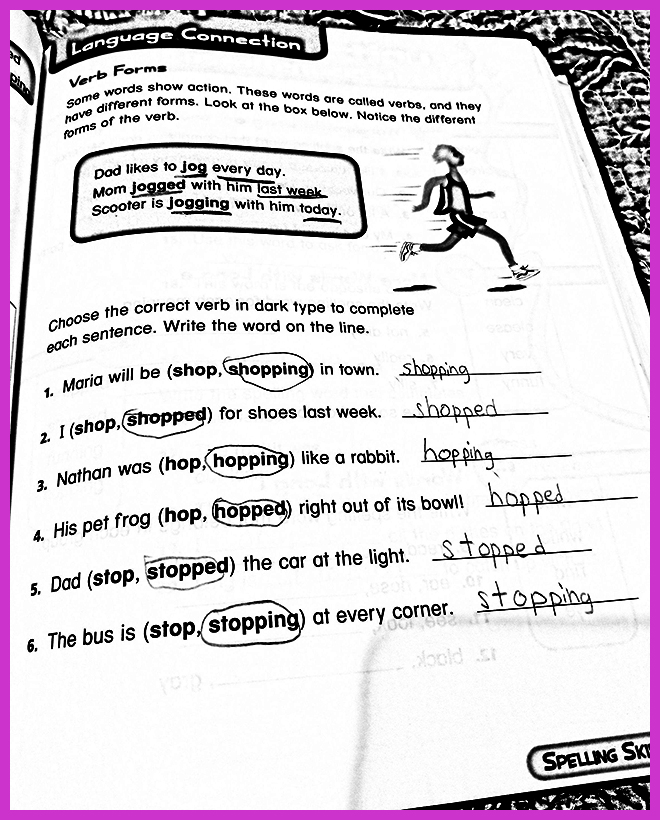 Language Connection
Verb Forms
Some words show action. These words are called verbs, and they
have different forms. Look at the box below. Notice the different
forms of the verb.
Dad likes to jog every day.
Mom jogged with him last week.
Scooter is jogging with him today.
Choose the correct verb in dark type to complete
each sentence. Write the word on the line.
1. Maria will be (shop, shopping) in town. shopping
2. I (shop, shopped) for shoes last week. shopped
3. Nathan was (hop, hopping) like a rabbit. hopping
4. His pet frog (hop, hopped) right out of its bowl! hopped
5. Dad (stop, stopped) the car at the light. stopped
6. The bus is (stop, stopping) at every corner. stopping
12. black,
gray
SPELLING SKI